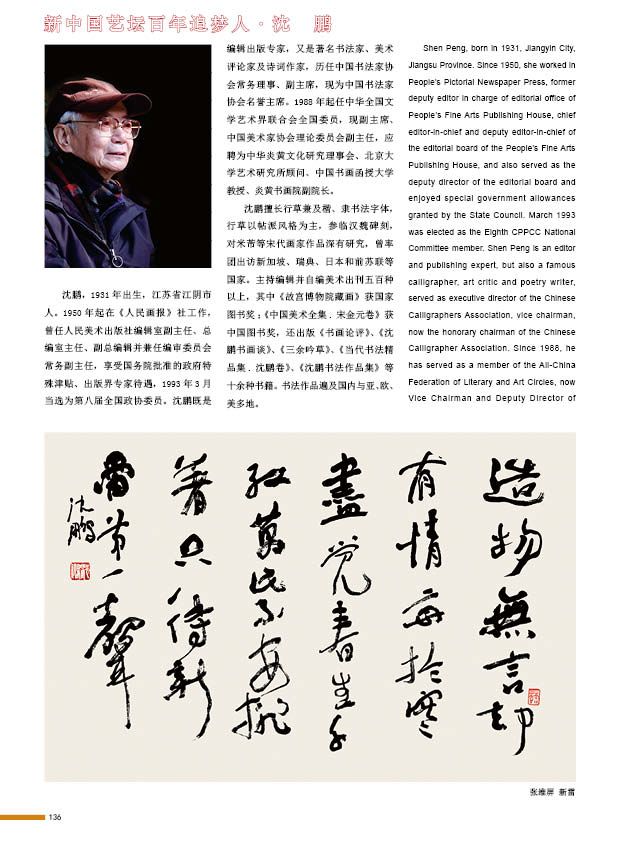 新中国艺坛百年追梦人·沈 鹏
沈鹏，1931 年出生，江苏省江阴市
人。1950 年起在《人民画报》社工作，
曾任人民美术出版社编辑室副主任、总
编室主任、副总编辑并兼任编审委员会
常务副主任，享受国务院批准的政府特
殊津贴、出版界专家待遇，1993 年 3 月
当选为第八届全国政协委员。沈鹏既是
编辑出版专家，又是著名书法家、美术
评论家及诗词作家，历任中国书法家协
会常务理事、副主席，现为中国书法家
协会名誉主席。1988 年起任中华全国文
学艺术界联合会全国委员，现副主席、
中国美术家协会理论委员会副主任，应
聘为中华炎黄文化研究理事会、北京大
学艺术研究所顾问、中国书画函授大学
教授、炎黄书画院副院长。
沈鹏擅长行草兼及楷、隶书法字体，
行草以帖派风格为主，参临汉魏碑刻，
对米芾等宋代画家作品深有研究，曾率
团出访新加坡、瑞典、日本和前苏联等
国家。主持编辑并自编美术出刊五百种
以上，其中《故宫博物院藏画》获国家
图书奖；《中国美术全集．宋金元卷》获
中国图书奖，还出版《书画论评》、《沈
鹏书画谈》、《三余吟草》、《当代书法精
品集．沈鹏卷》、《沈鹏书法作品集》等
十余种书籍。书法作品遍及国内与亚、欧、
美多地。
Shen Peng, born in 1931, Jiangyin City,
Jiangsu Province. Since 1950, she worked in
People's Pictorial Newspaper Press, former
deputy editor in charge of editorial office of
People's Fine Arts Publishing House, chief
editor-in-chief and deputy editor-in-chief of
the editorial board of the People's Fine Arts
Publishing House, and also served as the
deputy director of the editorial board and
enjoyed special government allowances
granted by the State Council. March 1993
was elected as the Eighth CPPCC National
Committee member. Shen Peng is an editor
and publishing expert, but also a famous
calligrapher, art critic and poetry writer,
served as executive director of the Chinese
Calligraphers Association, vice chairman,
now the honorary chairman of the Chinese
Calligrapher Association. Since 1988, he
has served as a member of the All-China
Federation of Literary and Art Circles, now
Vice Chairman and Deputy Director of
造物無言却
有情每於寒
盡覺春生千
紅萬紫安排
著只待新
雷第一聲
沈鹏
张维屏 新雷
136